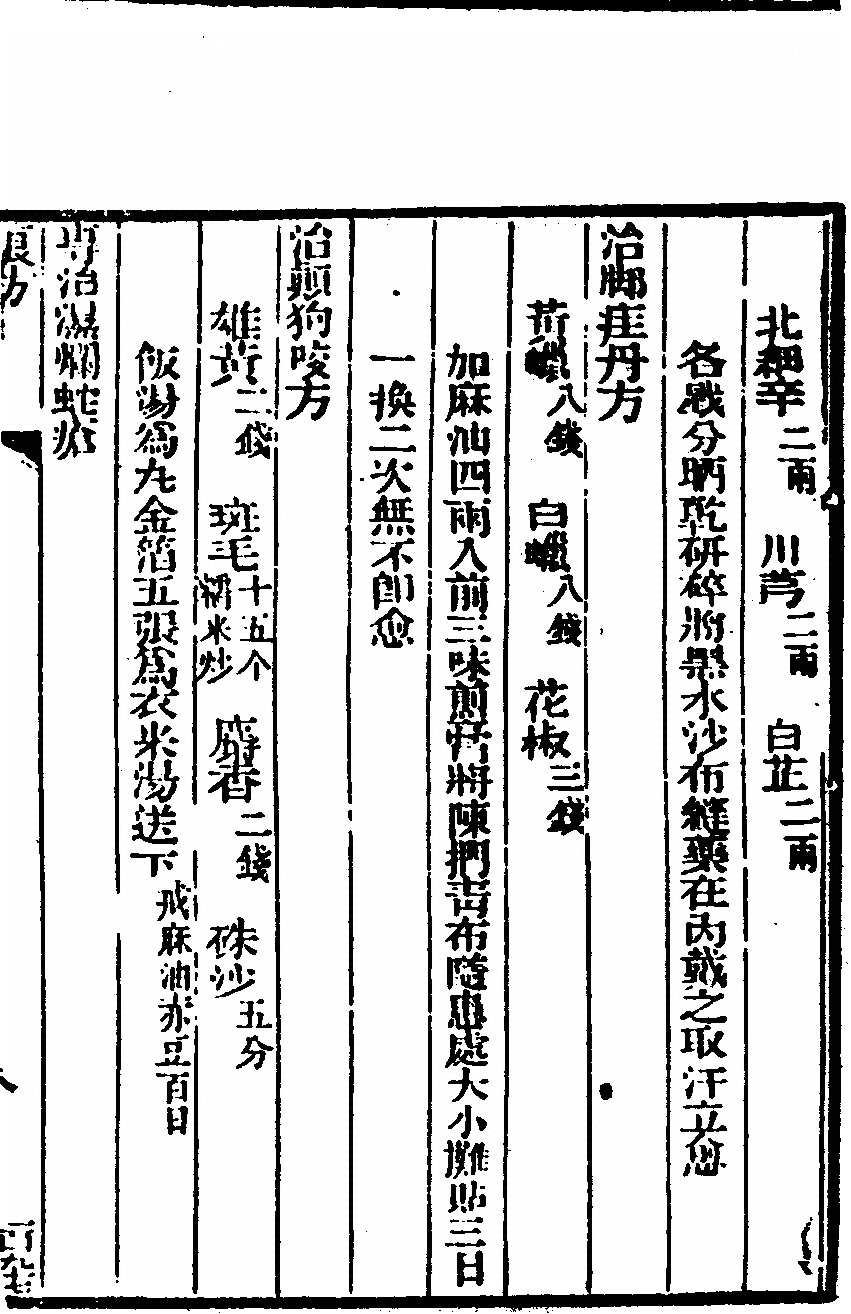 北細辛二兩 川芎二兩 白芷二兩
各戥分晒乾研碎將黑水沙布縫藥在內戴之取汗立愈
治脚疰丹方
黃蠟八錢 白蠟八錢 花椒三錢
加麻油四兩入前三味煎膏將陳捫青布隨患處大小攤貼三日
一換二次無不卽愈
治顛狗咬方
雄黃二錢 斑毛十五个糯米炒 麝香二錢 硃沙五分
飯湯爲丸金箔五張爲衣米湯送下戒麻油赤豆百日
専治濕爛蛇瘡